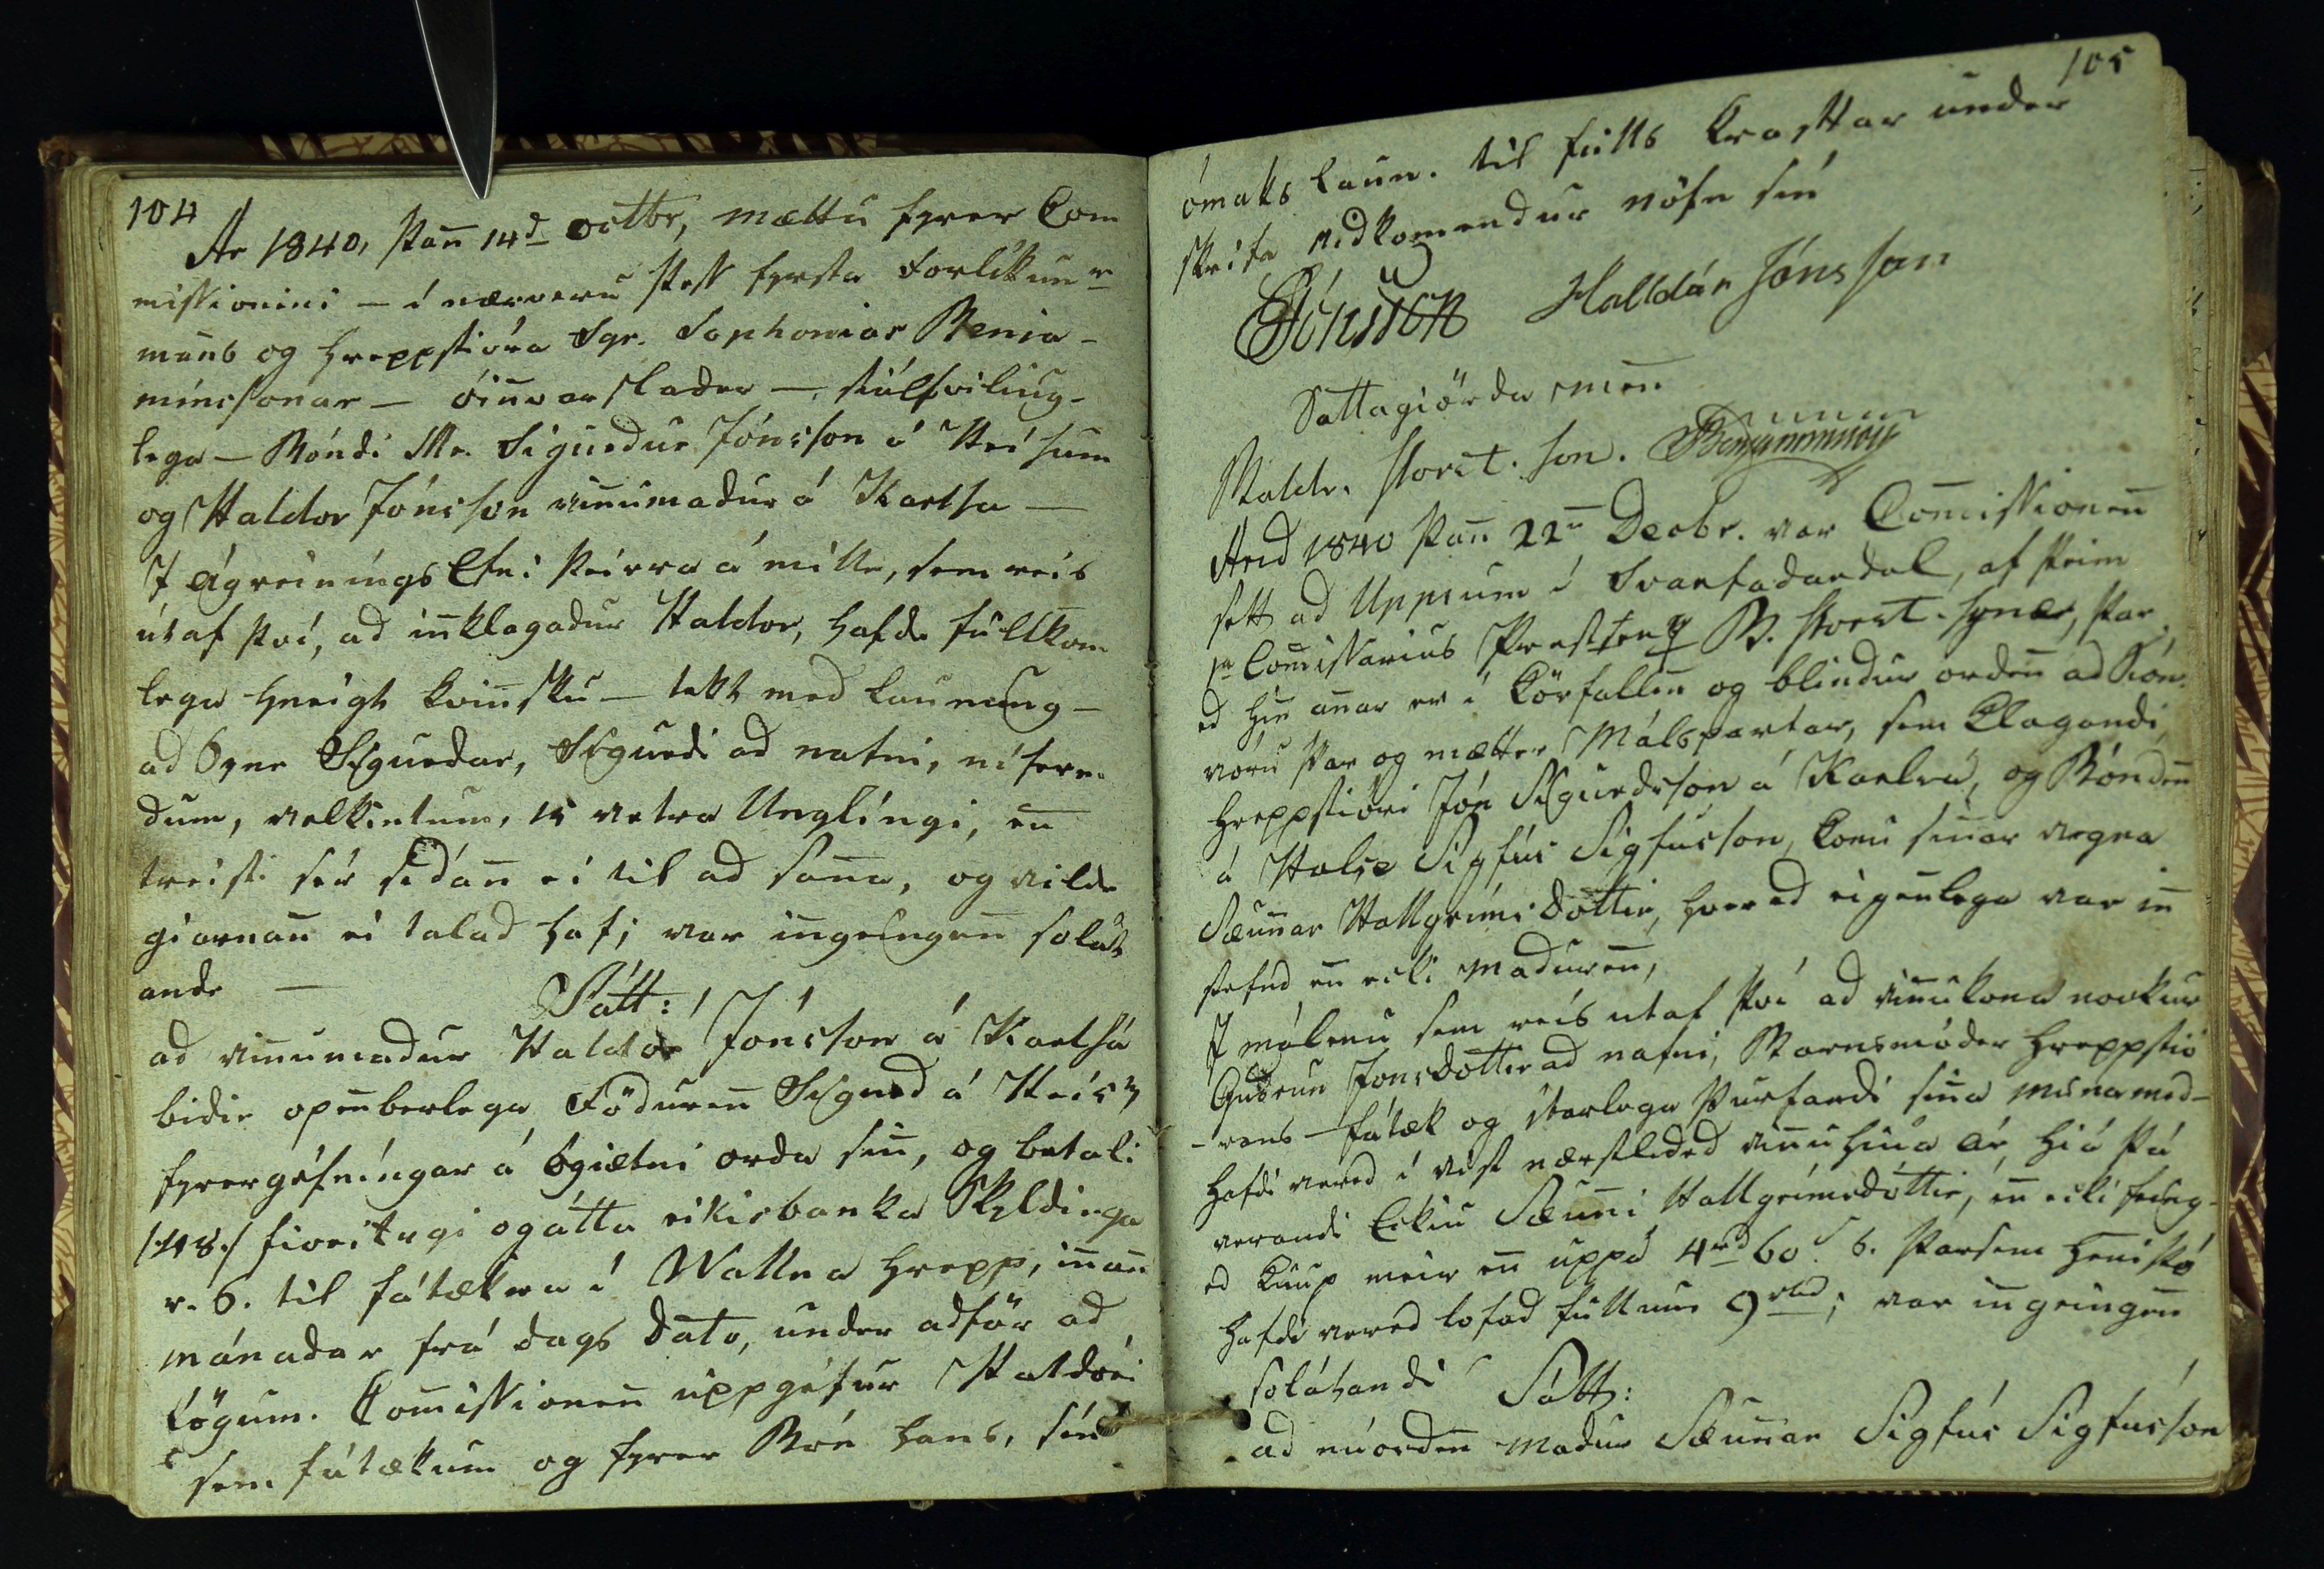 104
Ar 1840, þan̄ 14d octbr, mættu fyrer Com
missionini – í nærveru þess fyrsta Forlíkun r
man̄s og hreppstióra Sgr. Sophonias Benia-
mínssonar – – siálfvilíug-
lega – Bóndi Mr. Sigurdur Jónsson á Hreísum
og Haldor Jónsson vin̄umadur á Karlsá –
I ágreinings Efni þeirra á mille, sem reis
útaf því, ad in̄klagadur Haldor, hafde fullkom
lega hneigt kvin̄sku – tekt med launung –
ad Syne Sigurdar, Sigurdi ad nafni, níferm-
dum, velkintum, 15 vetra Unglíngi, en̄
treisti sér sídan̄ ei til ad san̄a, og vilde
giarnan̄ ei talad haf; var in̄geingen̄ soláts
ande –
Sátt:
ad vin̄umadur Haldor Jónsson á Karlsá
bidie open̄berlega Föduren̄ Sigurd á Hreís:
fyrergéfníngar á ógiætni orda sin̄, og betali
/:48:/ fiöretugi og átta rikisbanka Skyldinga
r. S. til fátækra í Valla hrepp, in̄an̄
mánadar frá dags Dato, under adför ad
lögum. Com̄issionen̄ uppgéfur Haldóri
sem fátækum og fyrer Bón hans, sín
105
ómaks laun. til fulls krafttar under
skrifa vidkomendur nöfn sín
SJónsson Halldór Jónsson
Sattagiörda men̄
Baldv. Þorst. son. SBenjaminsson
Arid 1840 þan̄ 22n Decbr. var Com̄issionen̄
sett ad Uppsum í Svarfadardal, af þeim
1a Com̄issarius Prestenum B. Þorst. syne, þar
ed hin an̄ar er í Körfallen̄ og blindur orden̄ ad Sión.
vóru þar og mætter Málspartar, sem Klagandi,
hreppstióri Jón Sigurdsson á Karlsá, og Bónden̄
á Halse Sigfús Sigfússon, konu sin̄ar vegna
Sæun̄ar Hallgrímsdottir, hver ed eigenlega var in̄
stefnd en̄ ecki Maduren̄,
I málenu sem reis útaf því ad vin̄ukona nockur
Gudrun Jonsdotter ad nafni, Barnsmóder hreppstió
-rans – fátæk og íþarlega þurfandi sin̄a muna med-
hafdi vered í vist nærstleded vin̄uhiúa ár, hiá þá
verandi Eckiu Sæun̄i Hallgrímsdóttir, en̄ ecki feing-
ed Kaup meir en̄ uppá 4rd 60 s S. þarsem heni þó
hafdi vered lofad fullum 9rbd; var in̄geingen̄
solátandi
Sátt:
ad núorden̄ Madur Sæun̄ar Sigfús Sigfússon